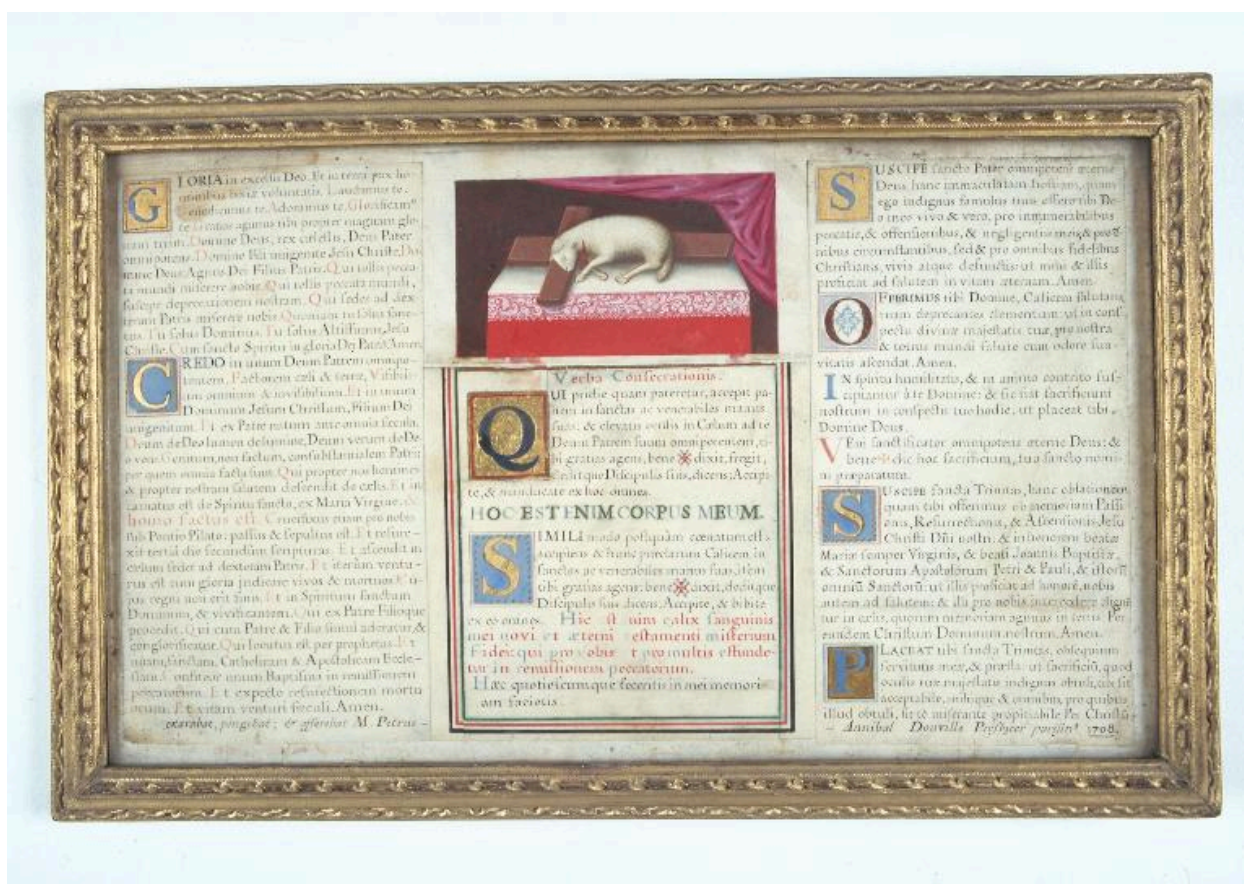 GLORIA in excelsis Deo. Et in terra pax ho-
minibus bonæ voluntatis. Laudamus te.
Benedicimus te. Adoramus te. Glorificam⁹
te. Gratias agimus tibi propter magnam glo-
riam tuam. Domine Deus, rex cælestis, Deus Pater
omnipotens. Domine Fili unigenite Jesu Christe. Do-
mine Deus Agnus Dei Filius Patris. Qui tollis pecca-
ta mundi miserere nobis. Qui tollis peccata mundi,
suscipe deprecationem nostram. Qui sedes ad dex-
teram Patris miserere nobis. Quoniam tu solus sanc-
tus. Tu solus Dominus. Tu solus Altissimus, Jesu
Christe. Cum sancto Spiritu in gloria Dei Patris. Amen.
CREDO in unum Deum Patrem omnipo-
tentem, Factorem cæli & terræ, Visibili-
um omnium & invisibilium. Et in unum
Dominum Jesum Christum, Filium Dei
unigenitum. Et ex Patre natum ante omnia secula.
Deum de Deo lumen de lumine, Deum verum de De-
o vero. Genitum, non factum, consubstantialem Patri:
per quem omnia facta sunt. Qui propter nos homines
& propter nostram salutem descendit de cælis. Et in-
carnatus est de Spiritu sancto, ex Maria Virgine. &
homo factus est. Crucifixus etiam pro nobis
sub Pontio Pilato, passus & sepultus est. Et resure-
xit tertia die secundum scripturas. Et ascendit in
cælum sedet ad dexteram Patris. Et iterum ventu-
rus est cum gloria judicare vivos & mortuos cu-
jus regni non erit finis. Et in Spiritum sanctum
Dominum, & vivificantem. Qui ex Patre Filioque
procedit. Qui cum Patre & Filio simul adoratur, &
conglorificatur. Qui locutus est per prophetas. Et
unam, sanctam, Catholicam & Apostolicam Eccle-
siam. Confiteor unum Baptisma in remissionem
peccatorum. Et expecto resurrectionem mortu
orum. Et vitam venturi sæculi. Amen.
exarabat, pingebat; & offerebat M. Petrus -
Verba Consecrationis.
QUI pridie quam pateretur, accepit pa-
nem in sanctas ac venerabiles manus
suas: & elevatis oculis in Cælum ad te
Deum Patrem suum omnipotentem, ti-
bi gratias agens, bene ✠ dixit, fregit,
deditque Discipulis suis, dicens: Accipi-
te, & manducate ex hoc omnes.
HOC EST ENIM CORPUS MEUM.
SIMILI modo postquam cœnatum est
accipiens & hunc præclarum Calicem in
sanctas ac venerabiles manus suas: item
tibi gratias agens: bene ✠ dixit, deditque
Discipulis suis dicens: Accipite, & bibite
ex eo omnes. Hic est enim calix sanguinis
mei novi et æterni testamenti misterium
Fidei: qui pro vobis et pro multis effunde-
tur in remissionem peccatorum.
Hæc quotiescumque feceritis in mei memori-
am facietis.
SUSCIPE sancte Pater omnipotens æterne
Deus hanc immaculatam hostiam, quam
ego indignus famulus tuus offero tibi De-
o meo vivo & vero, pro innumerabilibus
peccatis, & offensionibus, & negligentiis meis, & pro om-
nibus circumstantibus, sed & pro omnibus fidelibus
Christianis, vivis atque defunctis: ut mihi & illis
proficiat ad salutem in vitam æternam. Amen.
OFFERIMUS tibi Domine, Calicem salutaris,
tuam deprecantes clementiam: ut in cons-
pectu divinæ majestatis tuæ, pro nostra
& totius mundi salute cum odore sua-
vitatis ascendat. Amen.
IN spiritu humilitatis, & in animo contrito sus-
cipiamur à te Domine: & sic fiat sacrificium
nostrum in conspectu tuo hodie, ut placeat tibi.
Domine Deus.
VEni sanctificator omnipotens æterne Deus: &
bene ✠ dic hoc sacrificium, tuo sancto nomi-
ni præparatum.
SUSCIPE sancta Trinitas, hanc oblationem
quam tibi offerimus ob memoriam Passi-
onis, Resurrectionis, & Ascensionis Jesu
Christi Dñi nostri: & in honorem beatæ
Mariæ semper Virginis, & beati Joannis Baptistæ.
& Sanctorum Apostolorum Petri & Pauli, & istorũ
omniũ Sanctorũ: ut illis proficiat ad honorẽ, nobis
autem ad salutem: & illi pro nobis intercedere dignẽ-
tur in cælis, quorum memoriam agimus in terris. Per
eundem Christum Dominum nostrum. Amen.
PLACEAT tibi sancta Trinitas, obsequium
servitutis meæ, & præsta: ut sacrificiũ, quod
oculis tuæ majestatis indignus obtuli, tibi sit
acceptabile, mihique & omnibus, pro quibus
illud obtuli, sit te miserante propitiabile Per Christũ-
- Annibal Douville Presbyter parisin⁹ 1708.